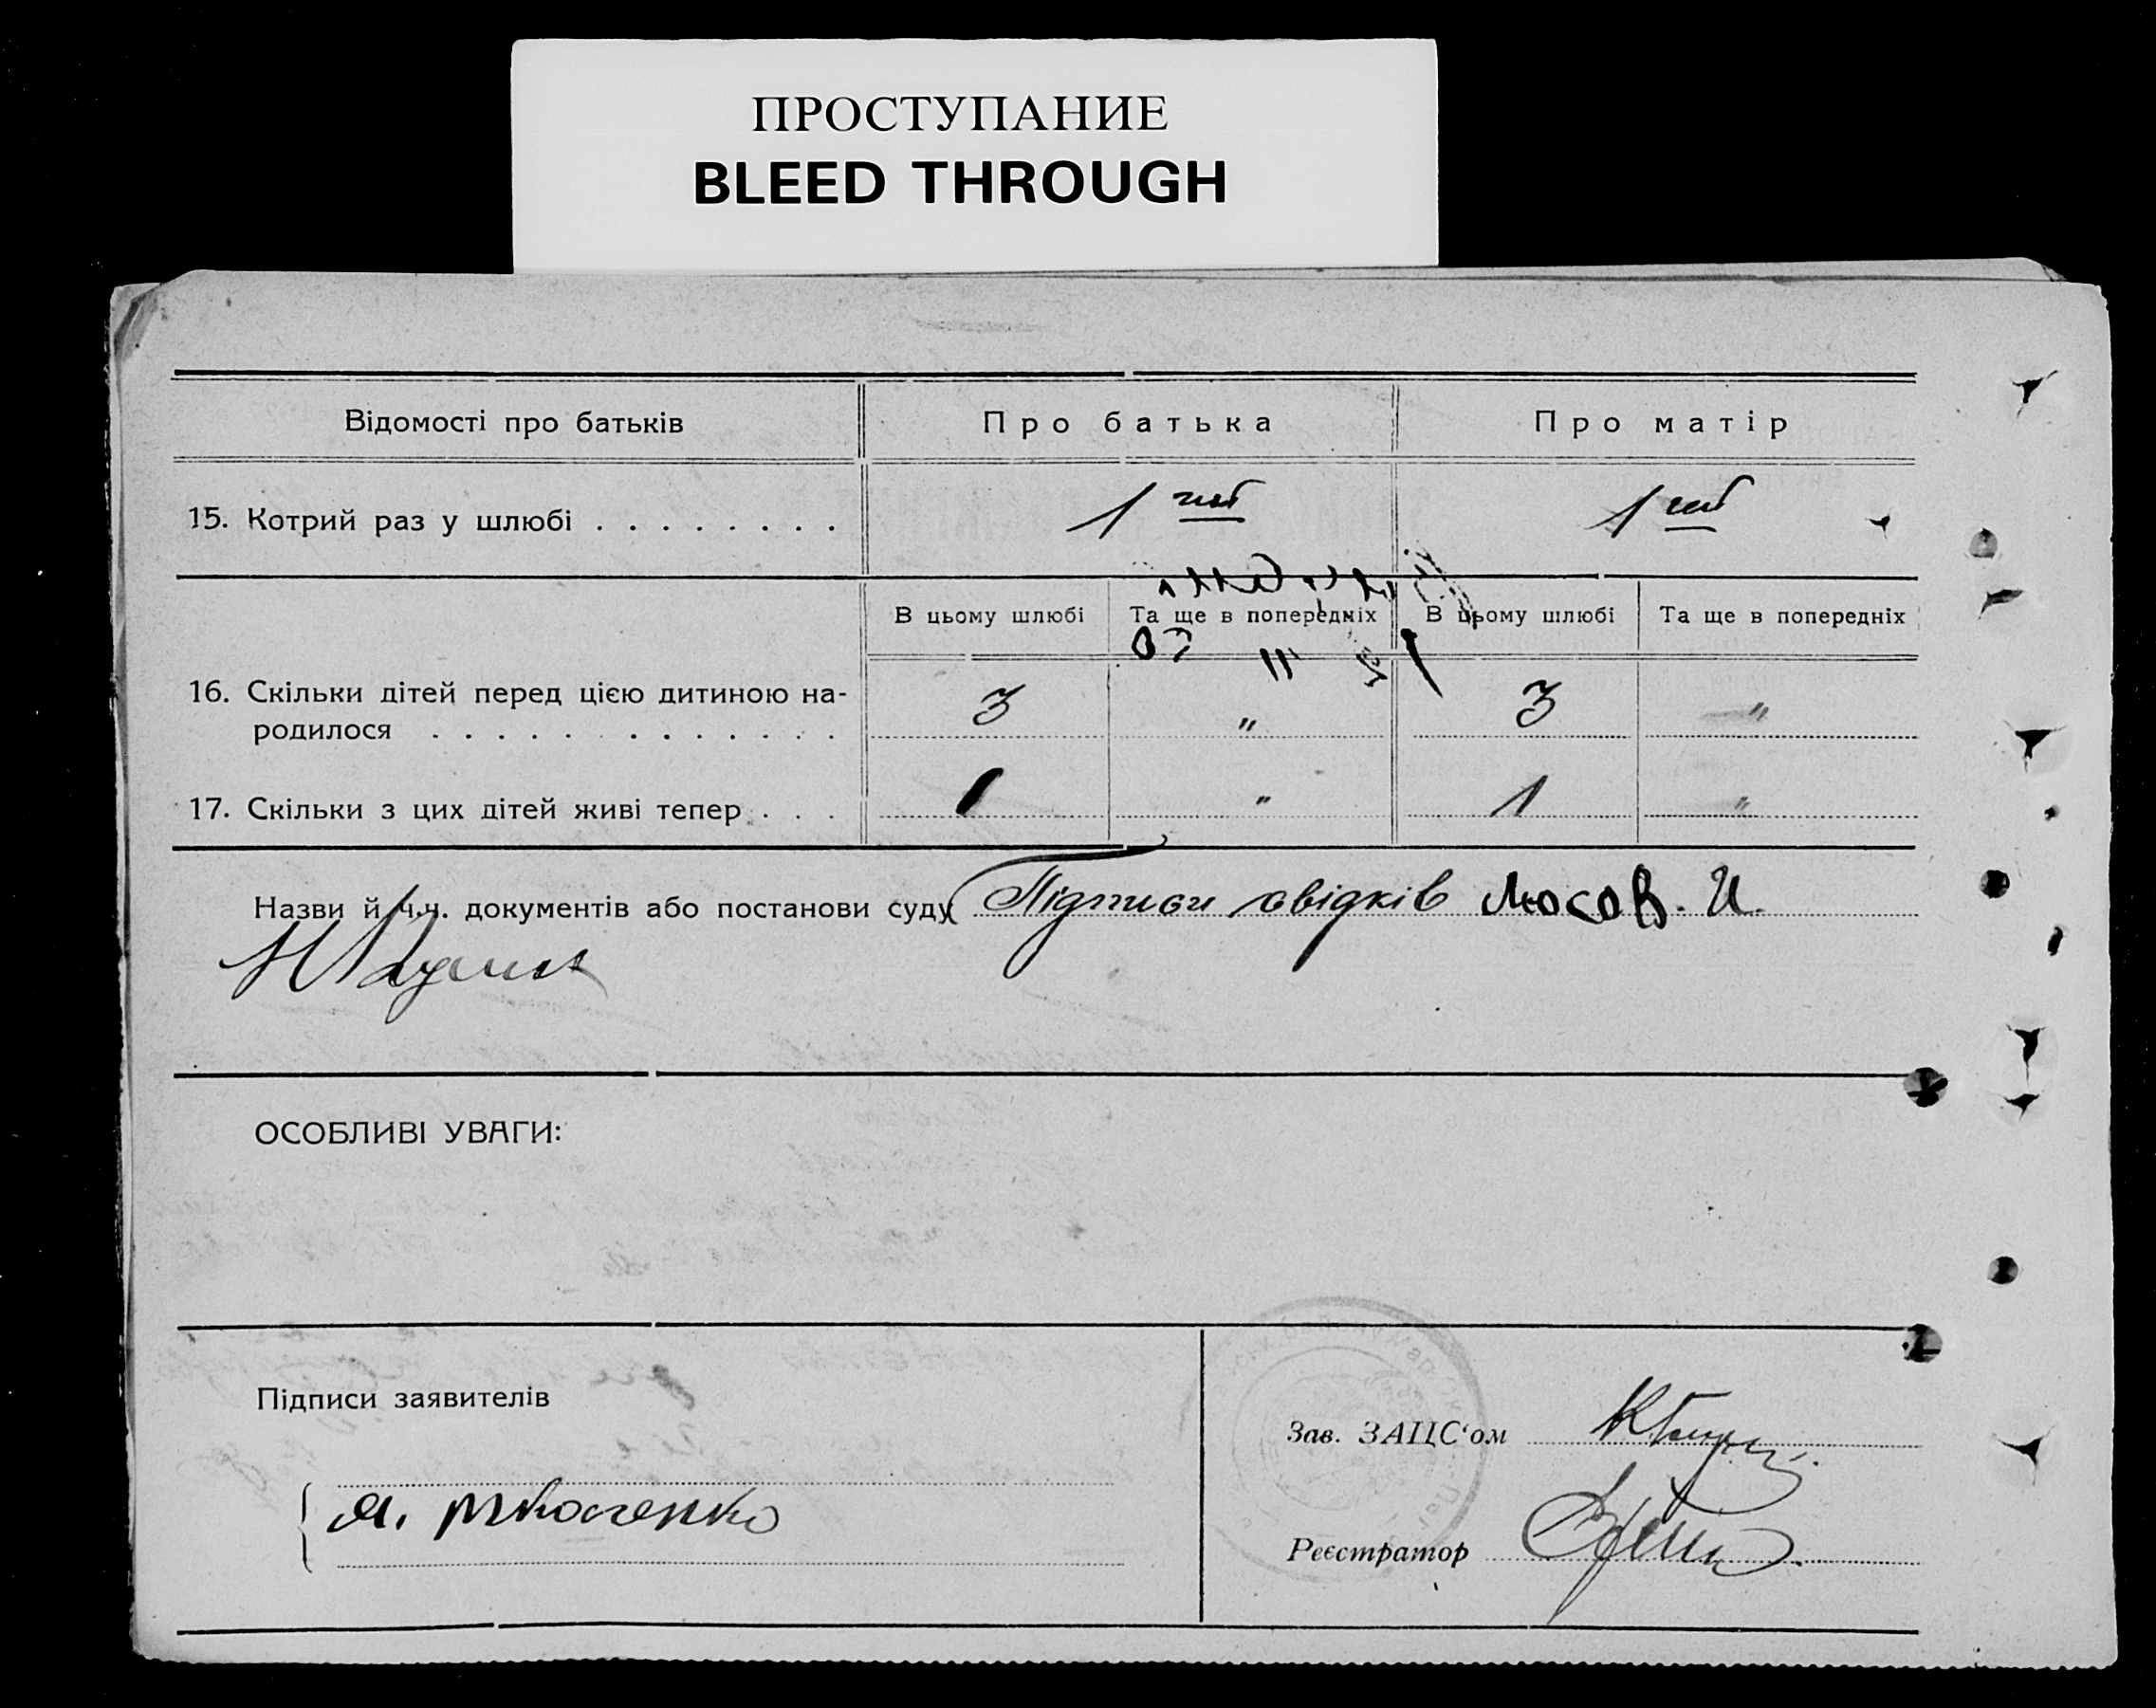 ПРОСТУПАНИЕ
BLEED THROUGH
Відомості про батьків
Про батька
Про матір
15. Котрий раз у шлюбі . . . . . . . .
1
1
В цьому шлюбі
Та ще в попередніх
В цьому шлюбі
Та ще в попередніх
16. Скільки дітей перед цією дитиною на-
родилося . . . . . . . . . . . . .
3
"
3
"
17. Скільки з цих дітей живі тепер . . .
1
"
1
"
Назви й ч.ч. документів або постанови суду Підписи свідків Люсов. И.
ОСОБЛИВІ УВАГИ:
Підписи заявителів
Зав. ЗАЦС‘ом
Реєстратор